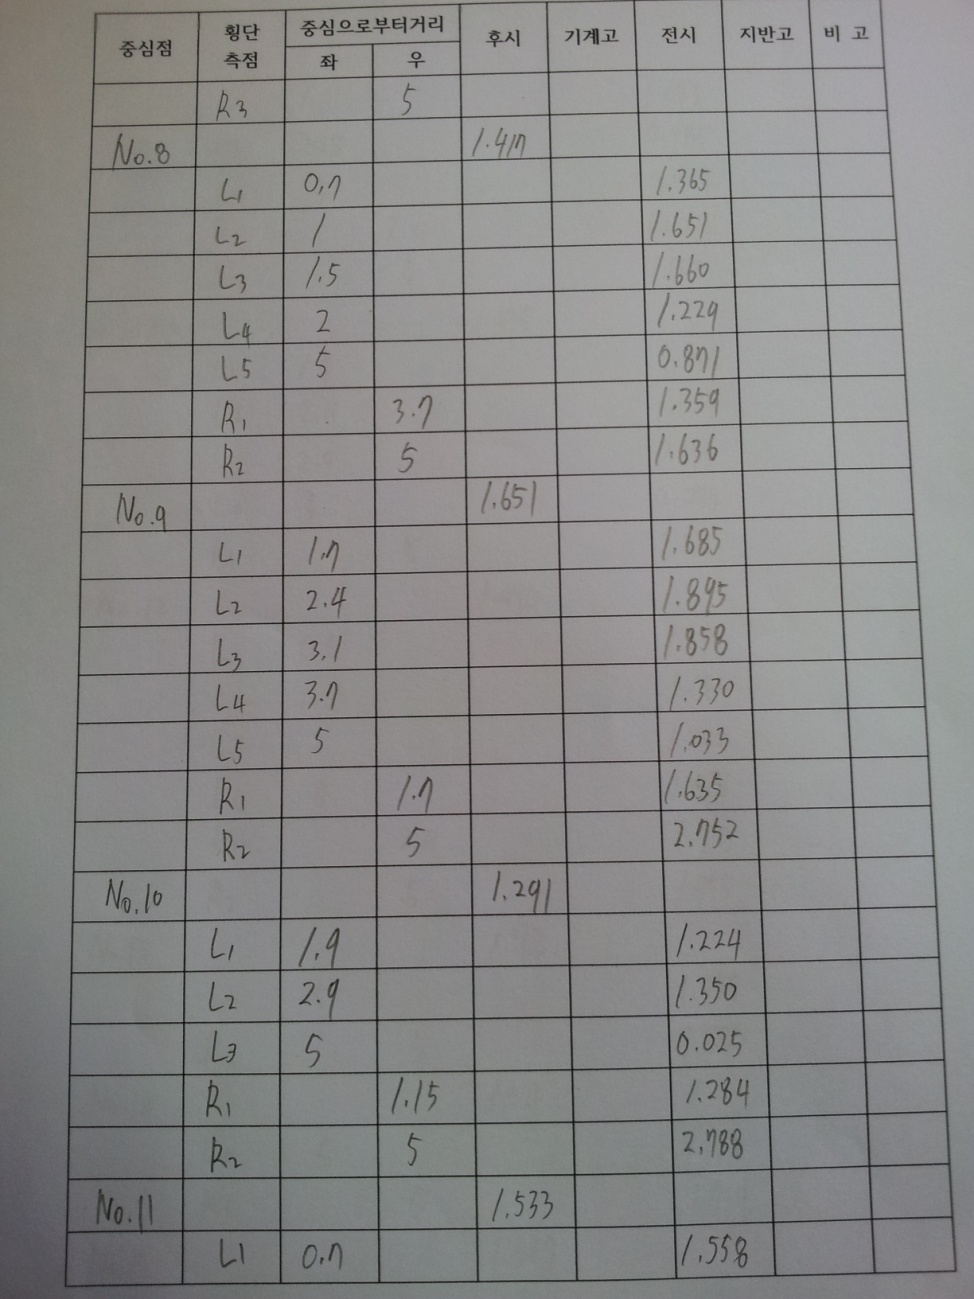 중심점 횡단측점 중심으로부터거리 좌 우 후시 기계고 전시 지반고 비 고
R3 5
No.8 1.417
L1 0.7 1.365
L2 1 1.651
L3 1.5 1.660
L4 2 1.229
L5 5 0.871
R1 3.7 1.359
R2 5 1.636
No.9 1.651
L1 1.7 1.685
L2 2.4 1.895
L3 3.1 1.858
L4 3.7 1.330
L5 5 1.033
R1 1.7 1.635
R2 5 2.752
No.10 1.291
L1 1.9 1.224
L2 2.9 1.350
L3 5 0.025
R1 1.15 1.284
R2 5 2.788
No.11 1.533
L1 0.7 1.558